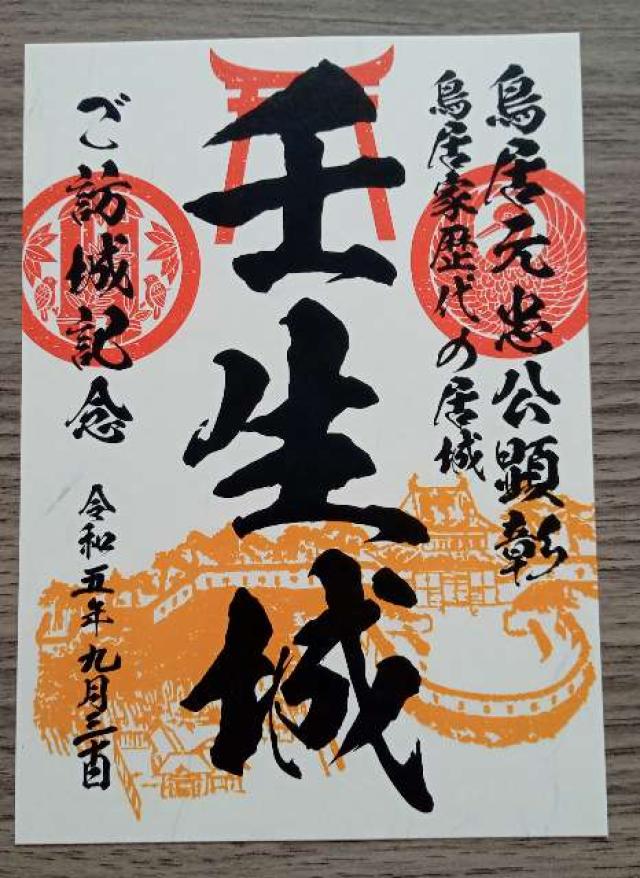 鳥居元忠公顕彰
鳥居家歴代の居城
壬生城
ご訪城記念
令和五年九月三十日